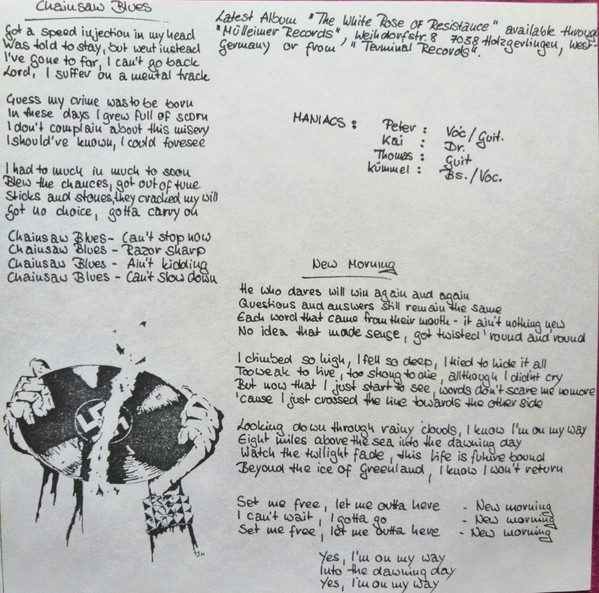 Chainsaw Blues
Got a speed injection in my head
Was told to stay, but went instead
I've gone to far, I can't go back
Lord, I suffer on a mental track
Guess my crime was to be born
In these days I grew full of scorn
I don't complain about this misery
I should've known, I could foresee
I had to much in much to soon
Blew the chances, got out of tune
Sticks and stones, they cracked my will
Got no choice, gotta carry on
Chainsaw Blues - Can't stop now
Chainsaw Blues - Razor sharp
Chainsaw Blues - Ain't kidding
Chainsaw Blues - Can't slow down
Latest Album "The White Rose of Resistance" available through
"Mülleimer Records", Weihdorfstr. 8 7038 Holzgerlingen, West-
Germany or from "Terminal Records".
MANIACS: Peter: Voc/Guit.
Kai: Dr.
Thomas: Guit
Kümmel: Bs./Voc.
New Morning
He who dares will win again and again
Questions and answers still remain the same
Each word that came from their mouth - it ain't nothing new
No idea that made sense, got twisted 'round and round
I climbed so high, I fell so deep, I tried to hide it all
Too weak to live, too strong to die, allthough I didn't cry
But now that I just start to see, words don't scare me no more
'cause I just crossed the line towards the other side
Looking down through rainy clouds, I know I'm on my way
Eight miles above the sea into the dawning day
Watch the twilight fade, this life is future bound
Beyond the ice of Greenland, I know I won't return
Set me free, let me outta here - New morning
I can't wait, I gotta go - New morning
Set me free, let me outta here - New morning
Yes, I'm on my way
Into the dawning day
Yes, I'm on my way